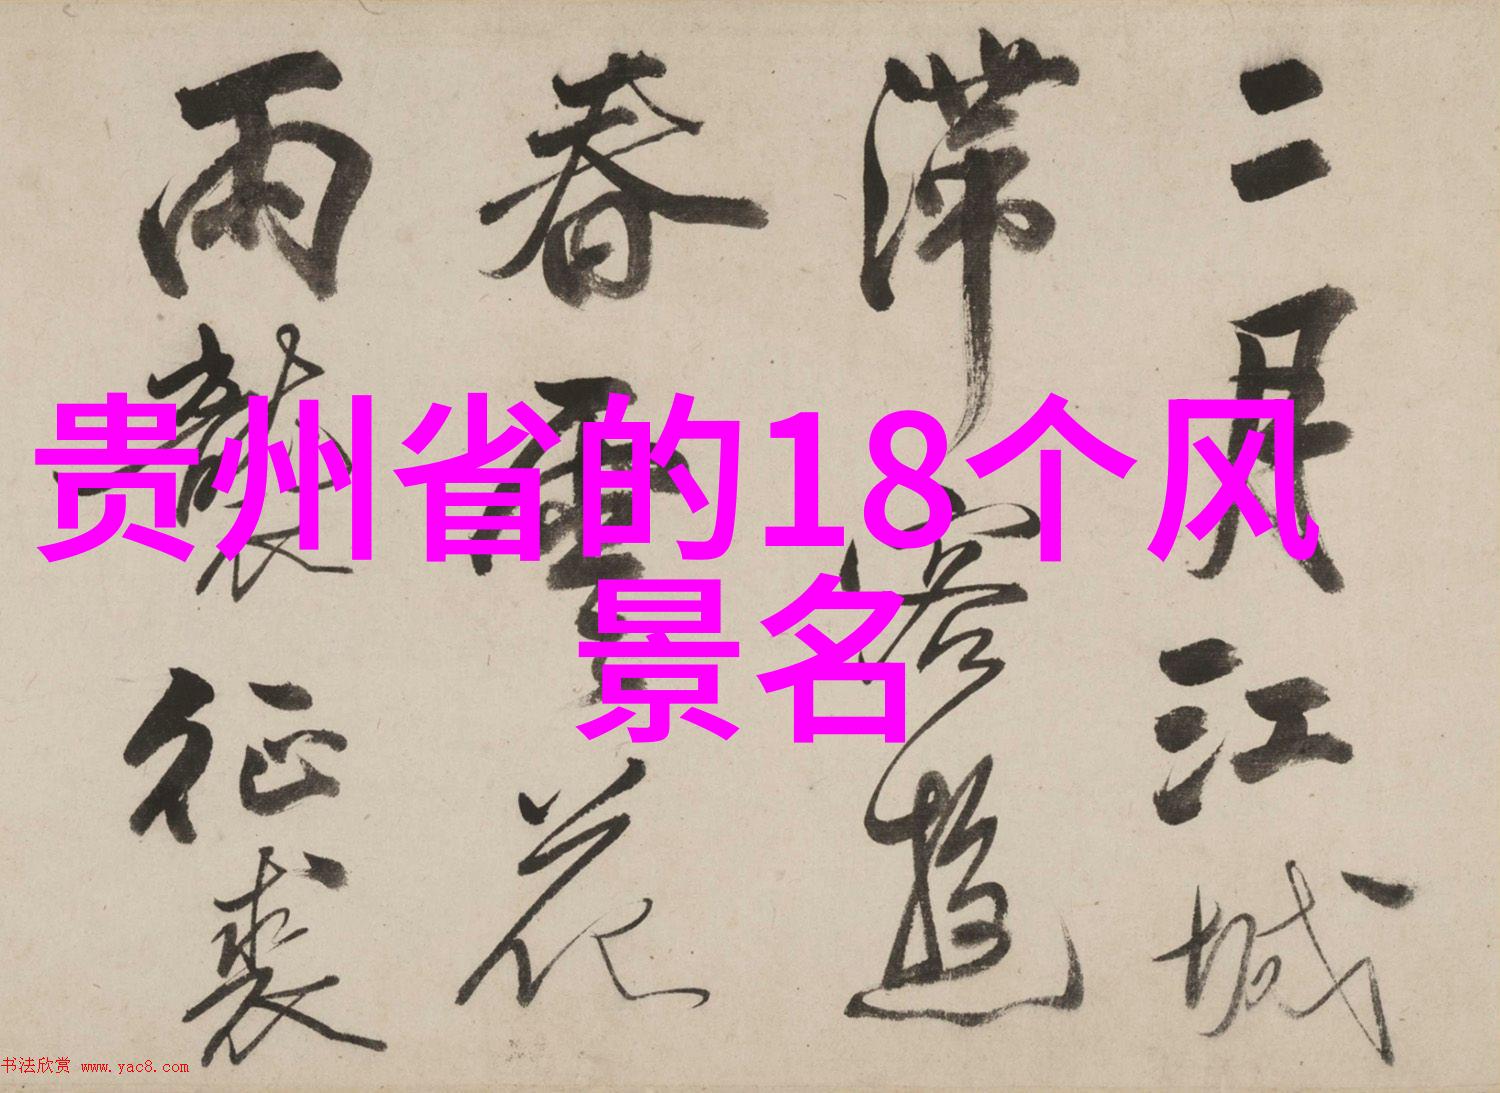 二月江城
滞客遊
春花
雨襲征裘
贵州省的18个风
景名
书法欣赏 www.yac8.com